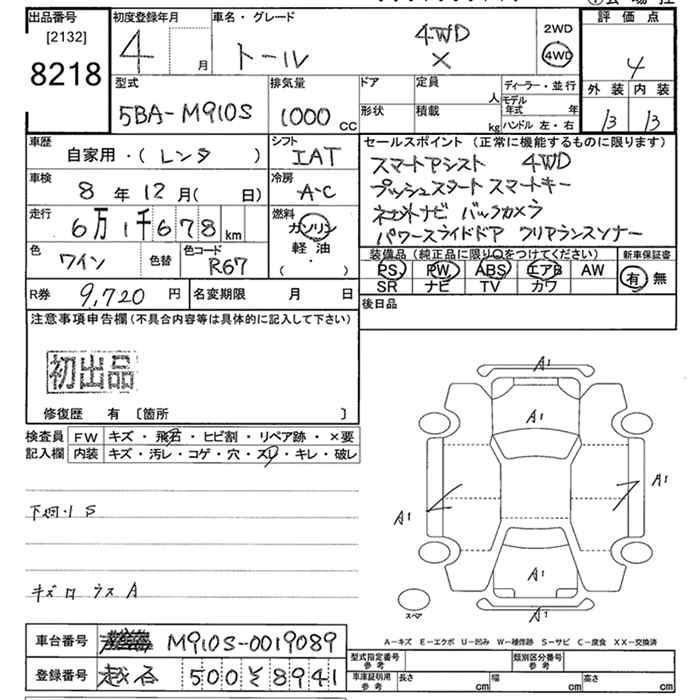 出品番号
[2132]
8218
初度登録年月
4 月
車名・グレード
トール 4WD X
2WD
4WD
評価点
4
外装 内装
B B
型式
5BA-M910S
排気量
1000 CC
ドア
形状
定員 人
積載 kg
ディーラー・並行
モデル年式 年
ハンドル 左・右
車歴
自家用・(レンタ)
シフト
IAT
車検
8年12月( 日)
冷房
A-C
走行
6万1千678km
燃料
ガソリン
軽油
( ・ )
色
ワイン
色替
色コード
R67
R券
9,720 円
名変期限 月 日
セールスポイント(正常に機能するものに限ります)
スマートアシスト 4WD
プッシュスタート スマートキー
ナビ バックカメラ
パワースライドドア クリアランスソナー
装備品(純正品に限り○をつけてください)
新車保証書
PS PW ABS エアB AW
SR ナビ TV カワ
有 無
後日品
注意事項申告欄(不具合内容等は具体的に記入して下さい)
初出品
修復歴 有〔箇所 〕
検査員記入欄
FW キズ・飛石・ヒビ割・リペア跡・×要
内装 キズ・汚レ・コゲ・穴・スレ・キレ・破レ
下廻・1 S
キズ ウス A
A1
A1
A1
A1
A1
A1
スペア
A-キズ E-エクボ U-凹み W-補修跡 S-サビ C-腐食 XX-交換済
車台番号
M910S-0019089
登録番号
越谷 500 そ 8941
型式指定番号 参考
類別区分番号 参考
車庫証明用 参考
長さ cm 幅 cm 高さ cm